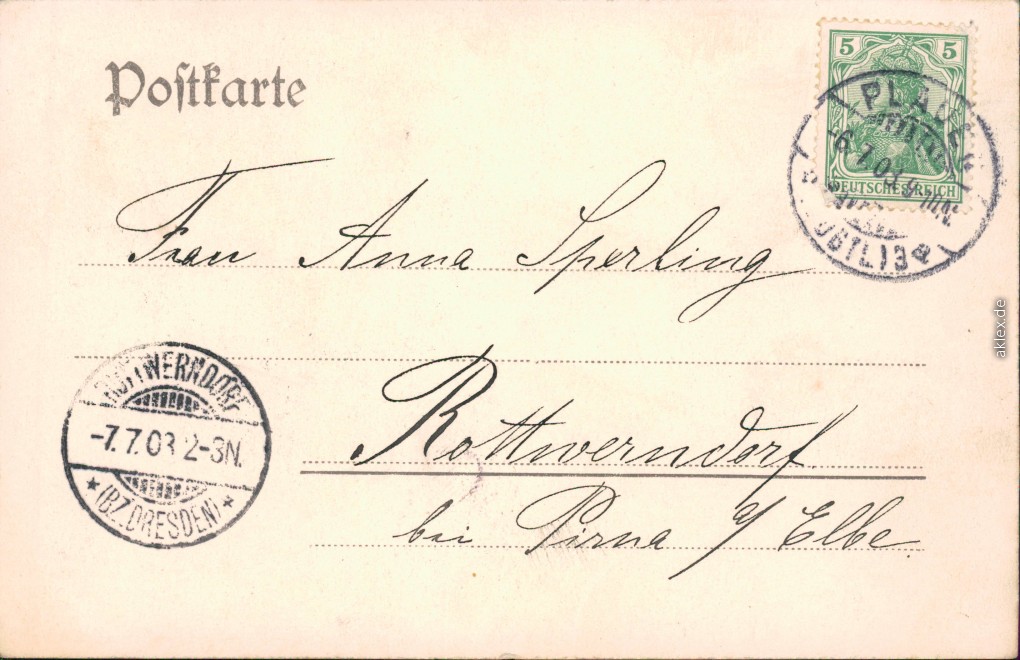 Postkarte
5 5
DEUTSCHES REICH
PLAUEN
6 7 03 9-10N.
(VGTL.) 3 a
Frau Anna Sperling
ROTTWERNDORF
-7.7.03 2-3N.
* (BZ.DRESDEN) *
Rottwerndorf
bei Pirna a/ Elbe.
aklex.de